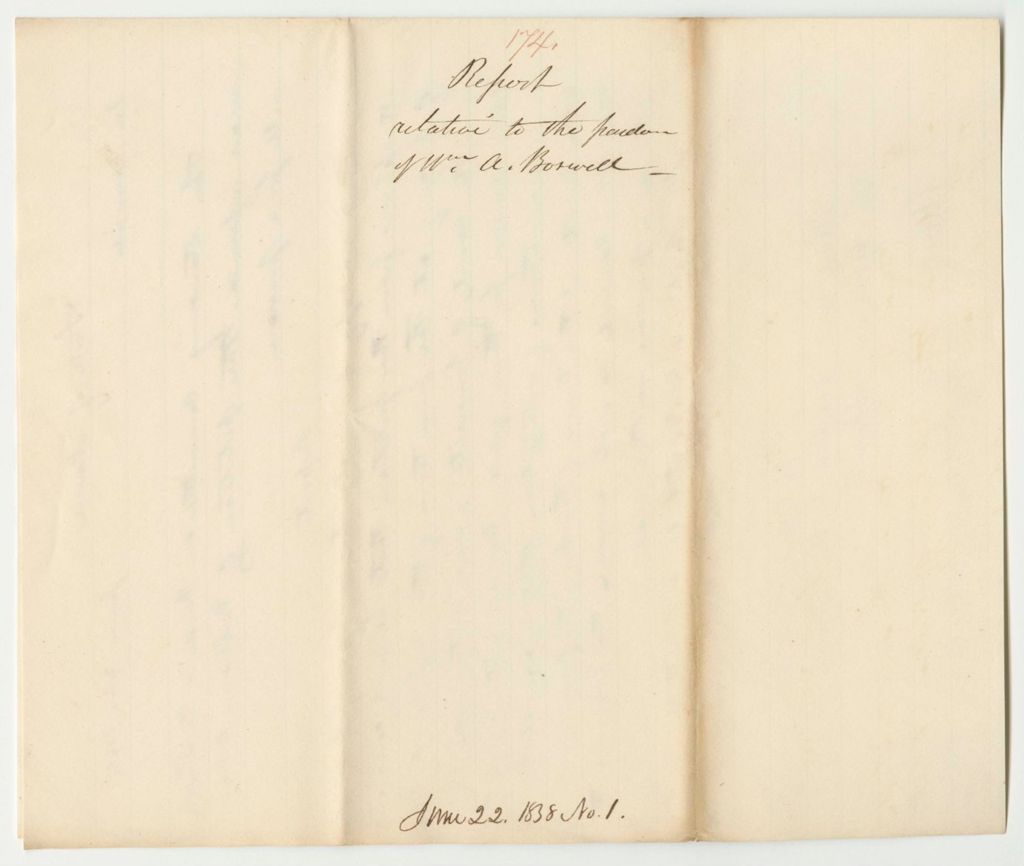 174.
Report
relative to the pardon
of Wm. A. Boswell –
June 22. 1838 No. 1.